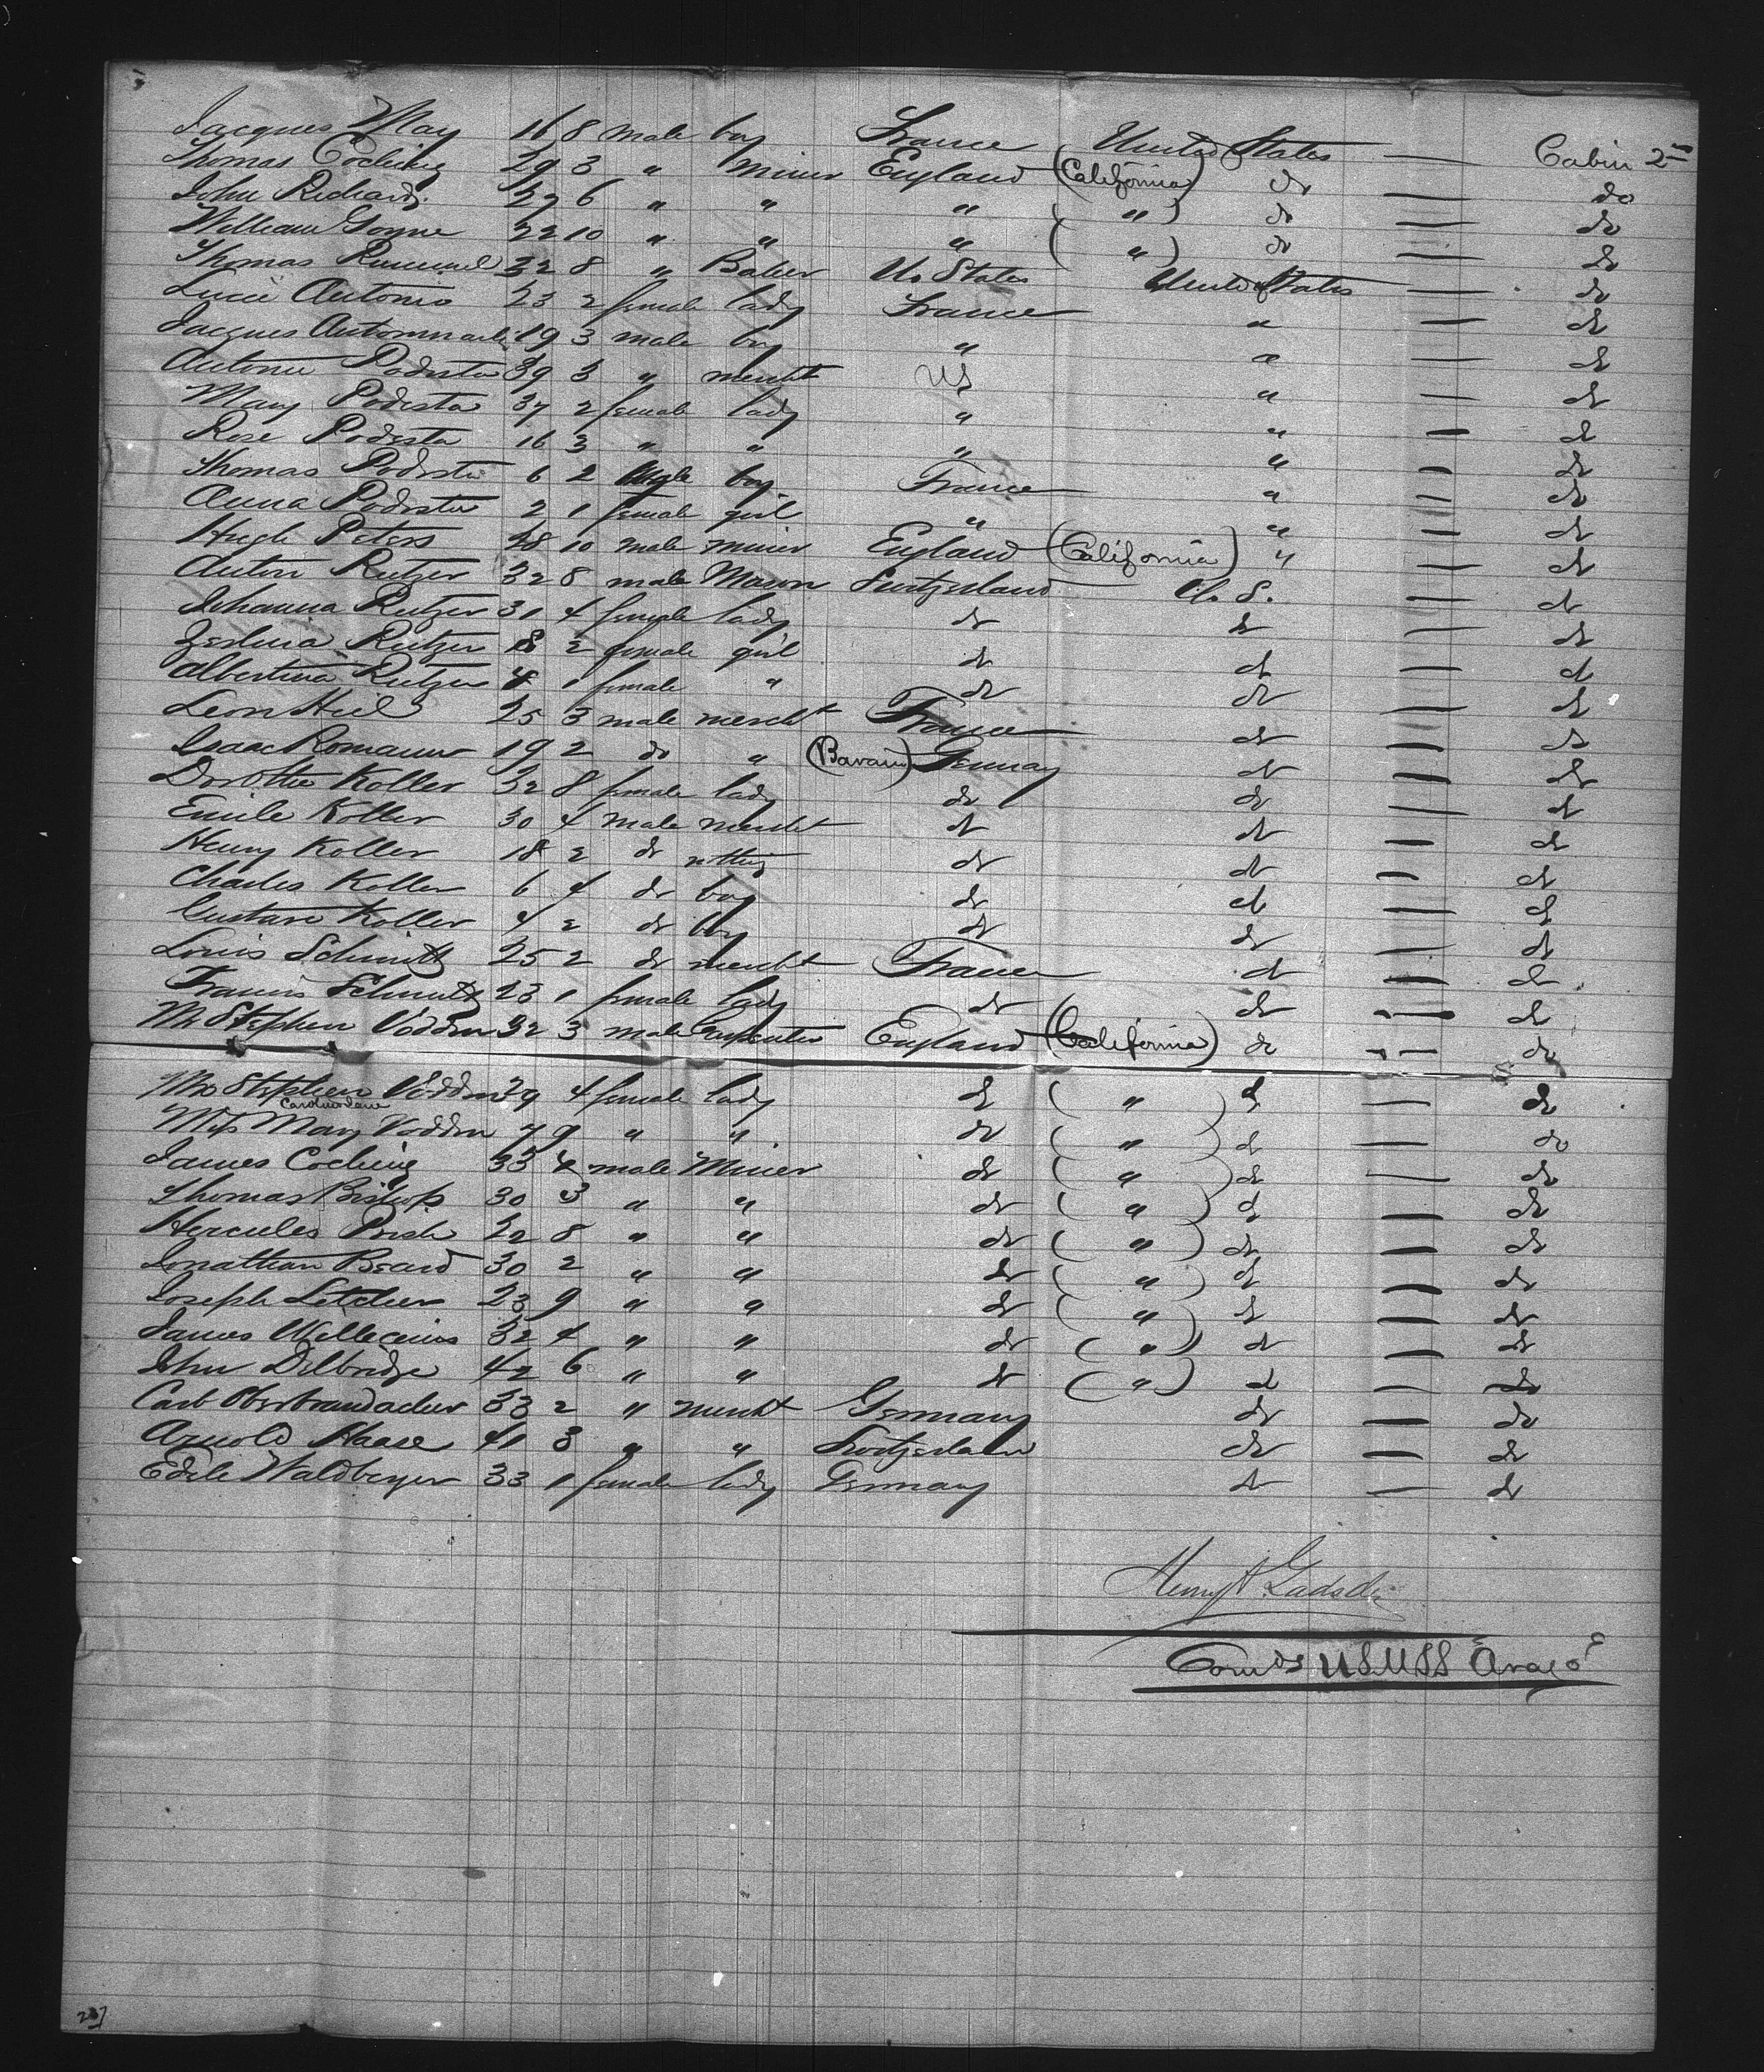 Jacques May 16 8 male boy France United States — Cabin 2nd
Thomas 29 3 " miner England (California) do — do
John Richards 27 6 " " " ( " ) do — do
William Goyne 22 10 " " " ( " ) do — do
Thomas 32 8 " Baker U. States United States — do
Lucie Antonio 23 2 female lady France " — do
Jacques 19 3 male boy " " — do
Antonio Podesta 39 3 " mercht US " — do
Mary Podesta 37 2 female lady " " — do
Rose Podesta 16 3 " " " " — do
Thomas Podesta 6 2 male boy France " — do
Anna Podesta 2 1 female girl " " — do
Hugh Peters 28 10 male miner England (California) " — do
Anton Rutzer 32 8 male Mason Switzerland U. S. — do
Johanna Rutzer 31 4 female lady do do — do
Rutzer 8 2 female girl do do — do
Albertina Rutzer 4 1 female " do do — do
Leon Hiel 25 3 male mercht France do — do
Isaac Romann 19 2 do " (Bavaria) Germany do — do
Dorothe Koller 32 8 female lady do do — do
Emile Koller 30 4 male mercht do do — do
Henry Koller 18 2 do nothing do do — do
Charles Koller 6 4 do boy do do — do
Gustave Koller 4 2 do boy do do — do
Louis Schmitt 25 2 do mercht France do — do
Francis Schmitt 23 1 female lady do do — do
Mr Stephen Vodden 32 3 male Carpenter England (California) do — do
Mrs Stephen Vodden 29 4 female lady do ( " ) do — do
Caroline Jane
Miss Mary Vodden 7 9 " " do ( " ) do — do
James Cocking 33 4 male Miner do ( " ) do — do
Thomas Bishop 30 3 " " do ( " ) do — do
Hercules 22 8 " " do ( " ) do — do
Jonathan Beard 30 2 " " do ( " ) do — do
Joseph Letcher 23 9 " " do ( " ) do — do
James Williams 32 4 " " do ( " ) do — do
John Delbridge 42 6 " " do ( " ) do — do
Carl Oberbrandacher 33 2 " mercht Germany do — do
Arnold Haase 41 3 " " Switzerland do — do
Edele Waldberger 33 1 female lady Germany do — do
Henry A Gadsden
Comdg USMSS Arago
237